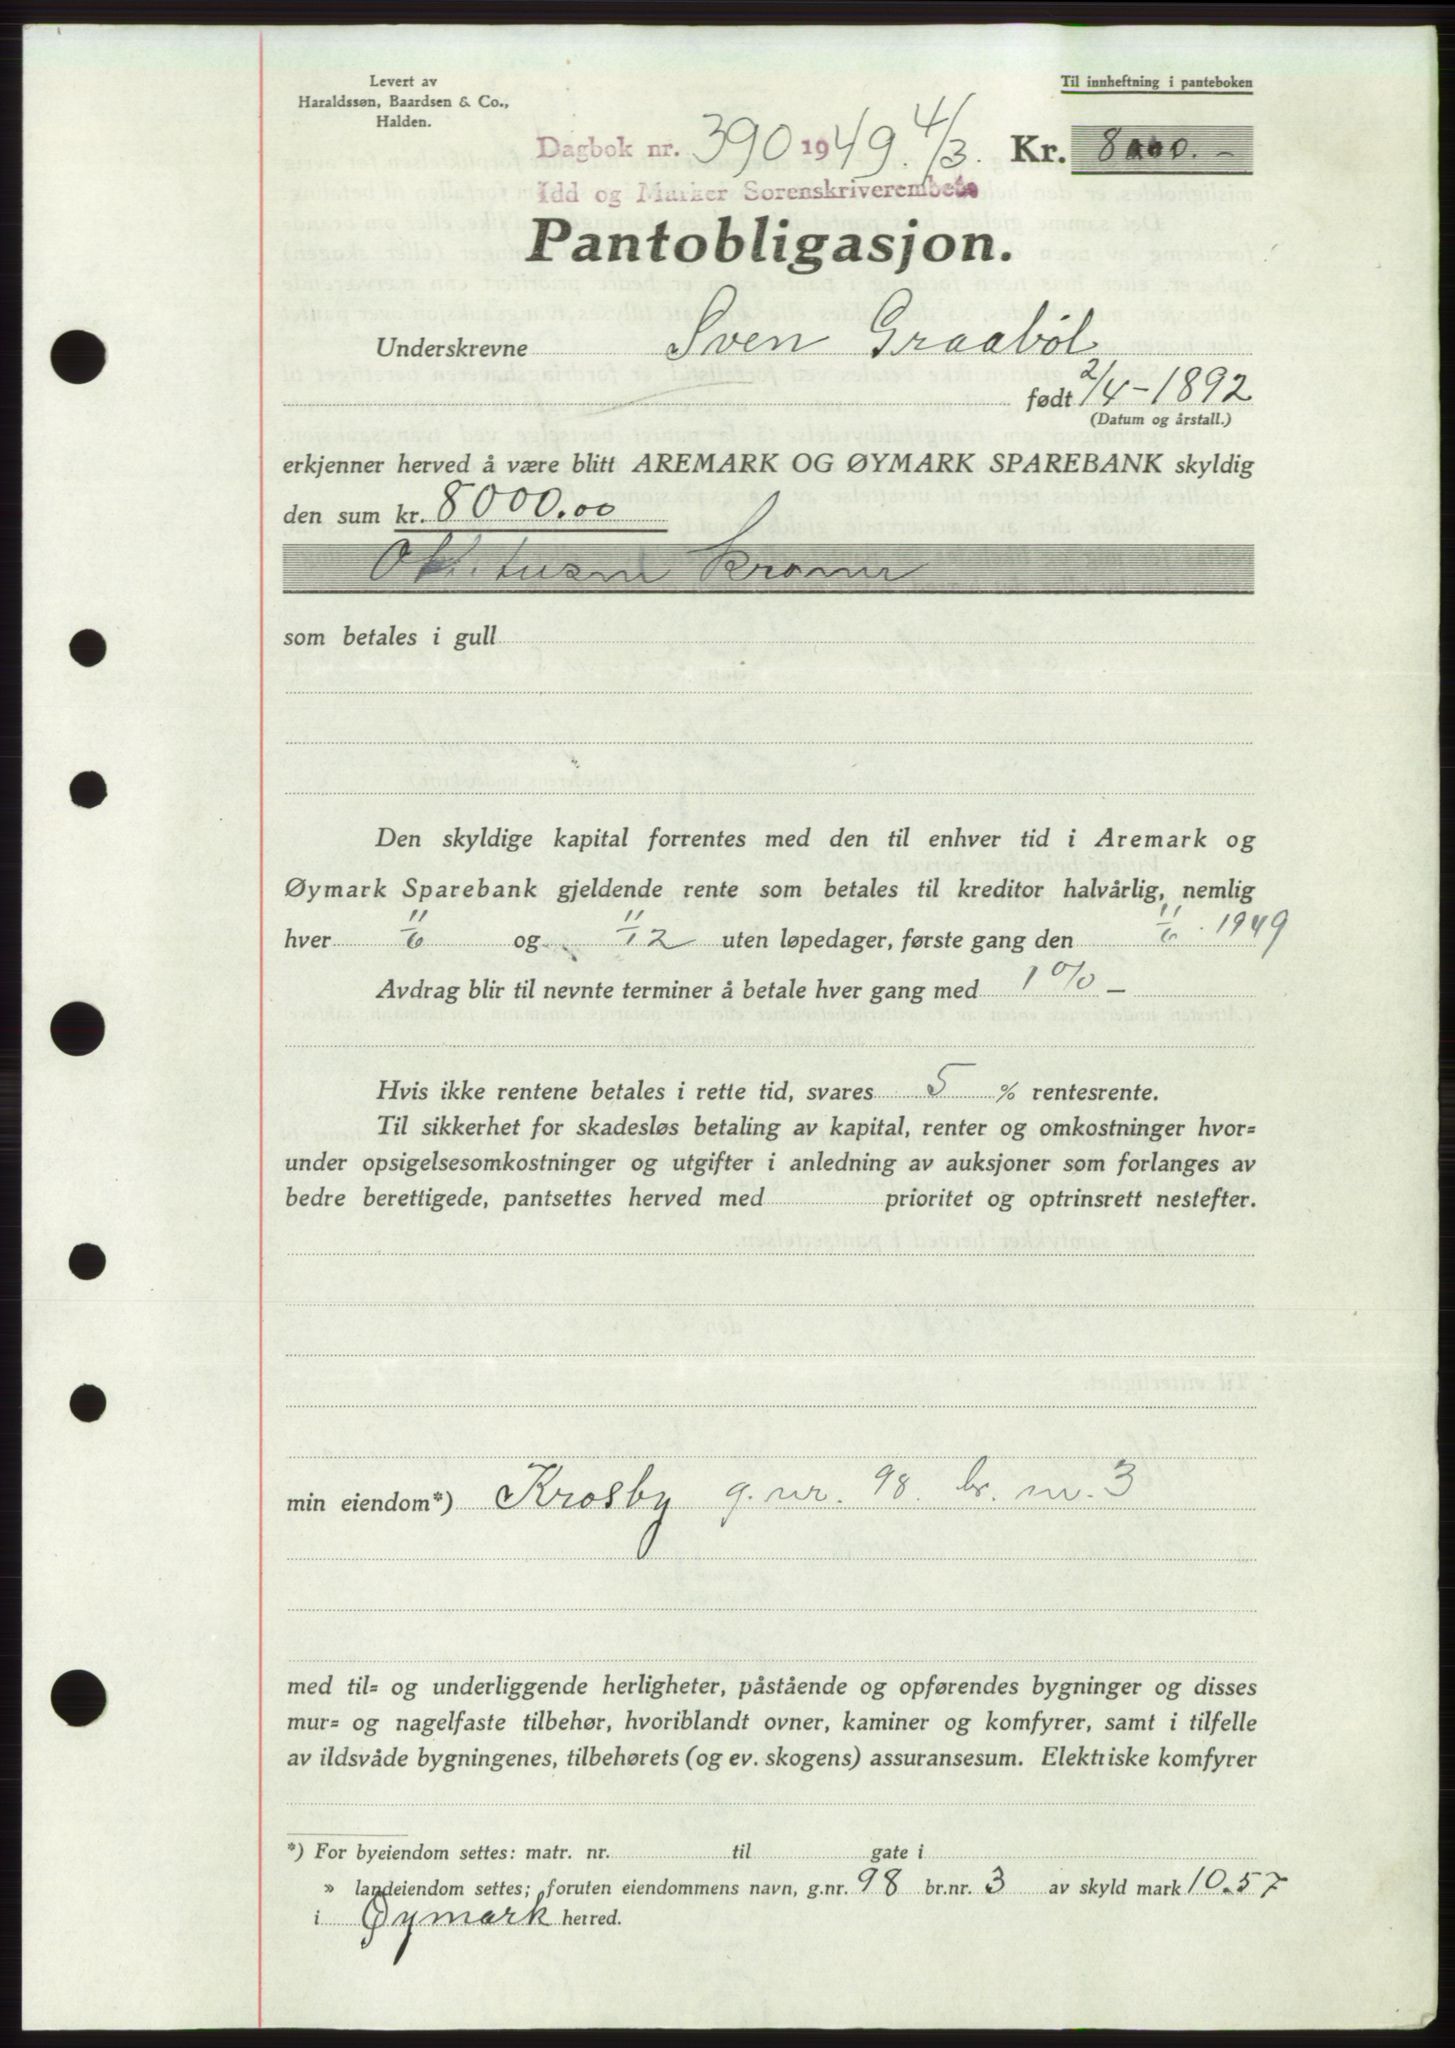 Levert av
Haraldssøn, Baardsen & Co.,
Halden.
Til innheftning i panteboken
Dagbok nr. 390 1949. 4/3. Kr. 8000.–
Idd og Marker Sorenskriverembete
Pantobligasjon.
Underskrevne Sven Graabøl
født 2/4 – 1892
(Datum og årstall.)
erkjenner herved å være blitt AREMARK OG ØYMARK SPAREBANK skyldig
den sum kr. 8000.00
kroner
som betales i gull
Den skyldige kapital forrentes med den til enhver tid i Aremark og
Øymark Sparebank gjeldende rente som betales til kreditor halvårlig, nemlig
hver 11/6 og 11/12 uten løpedager, første gang den 11/6. 1949
Avdrag blir til nevnte terminer å betale hver gang med 1% –
Hvis ikke rentene betales i rette tid, svares 5 % rentesrente.
Til sikkerhet for skadesløs betaling av kapital, renter og omkostninger hvor=
under opsigelsesomkostninger og utgifter i anledning av auksjoner som forlanges av
bedre berettigede, pantsettes herved med prioritet og optrinsrett nestefter.
min eiendom*) Krosby g.nr. 98. br. nr. 3
med til= og underliggende herligheter, påstående og opførendes bygninger og disses
mur= og nagelfaste tilbehør, hvoriblandt ovner, kaminer og komfyrer, samt i tilfelle
av ildsvåde bygningenes, tilbehørets (og ev. skogens) assuransesum. Elektriske komfyrer
*) For byeiendom settes: matr. nr. til gate i
» landeiendom settes; foruten eiendommens navn, g.nr. 98 br.nr. 3 av skyld mark 10.57
i Øymark herred.